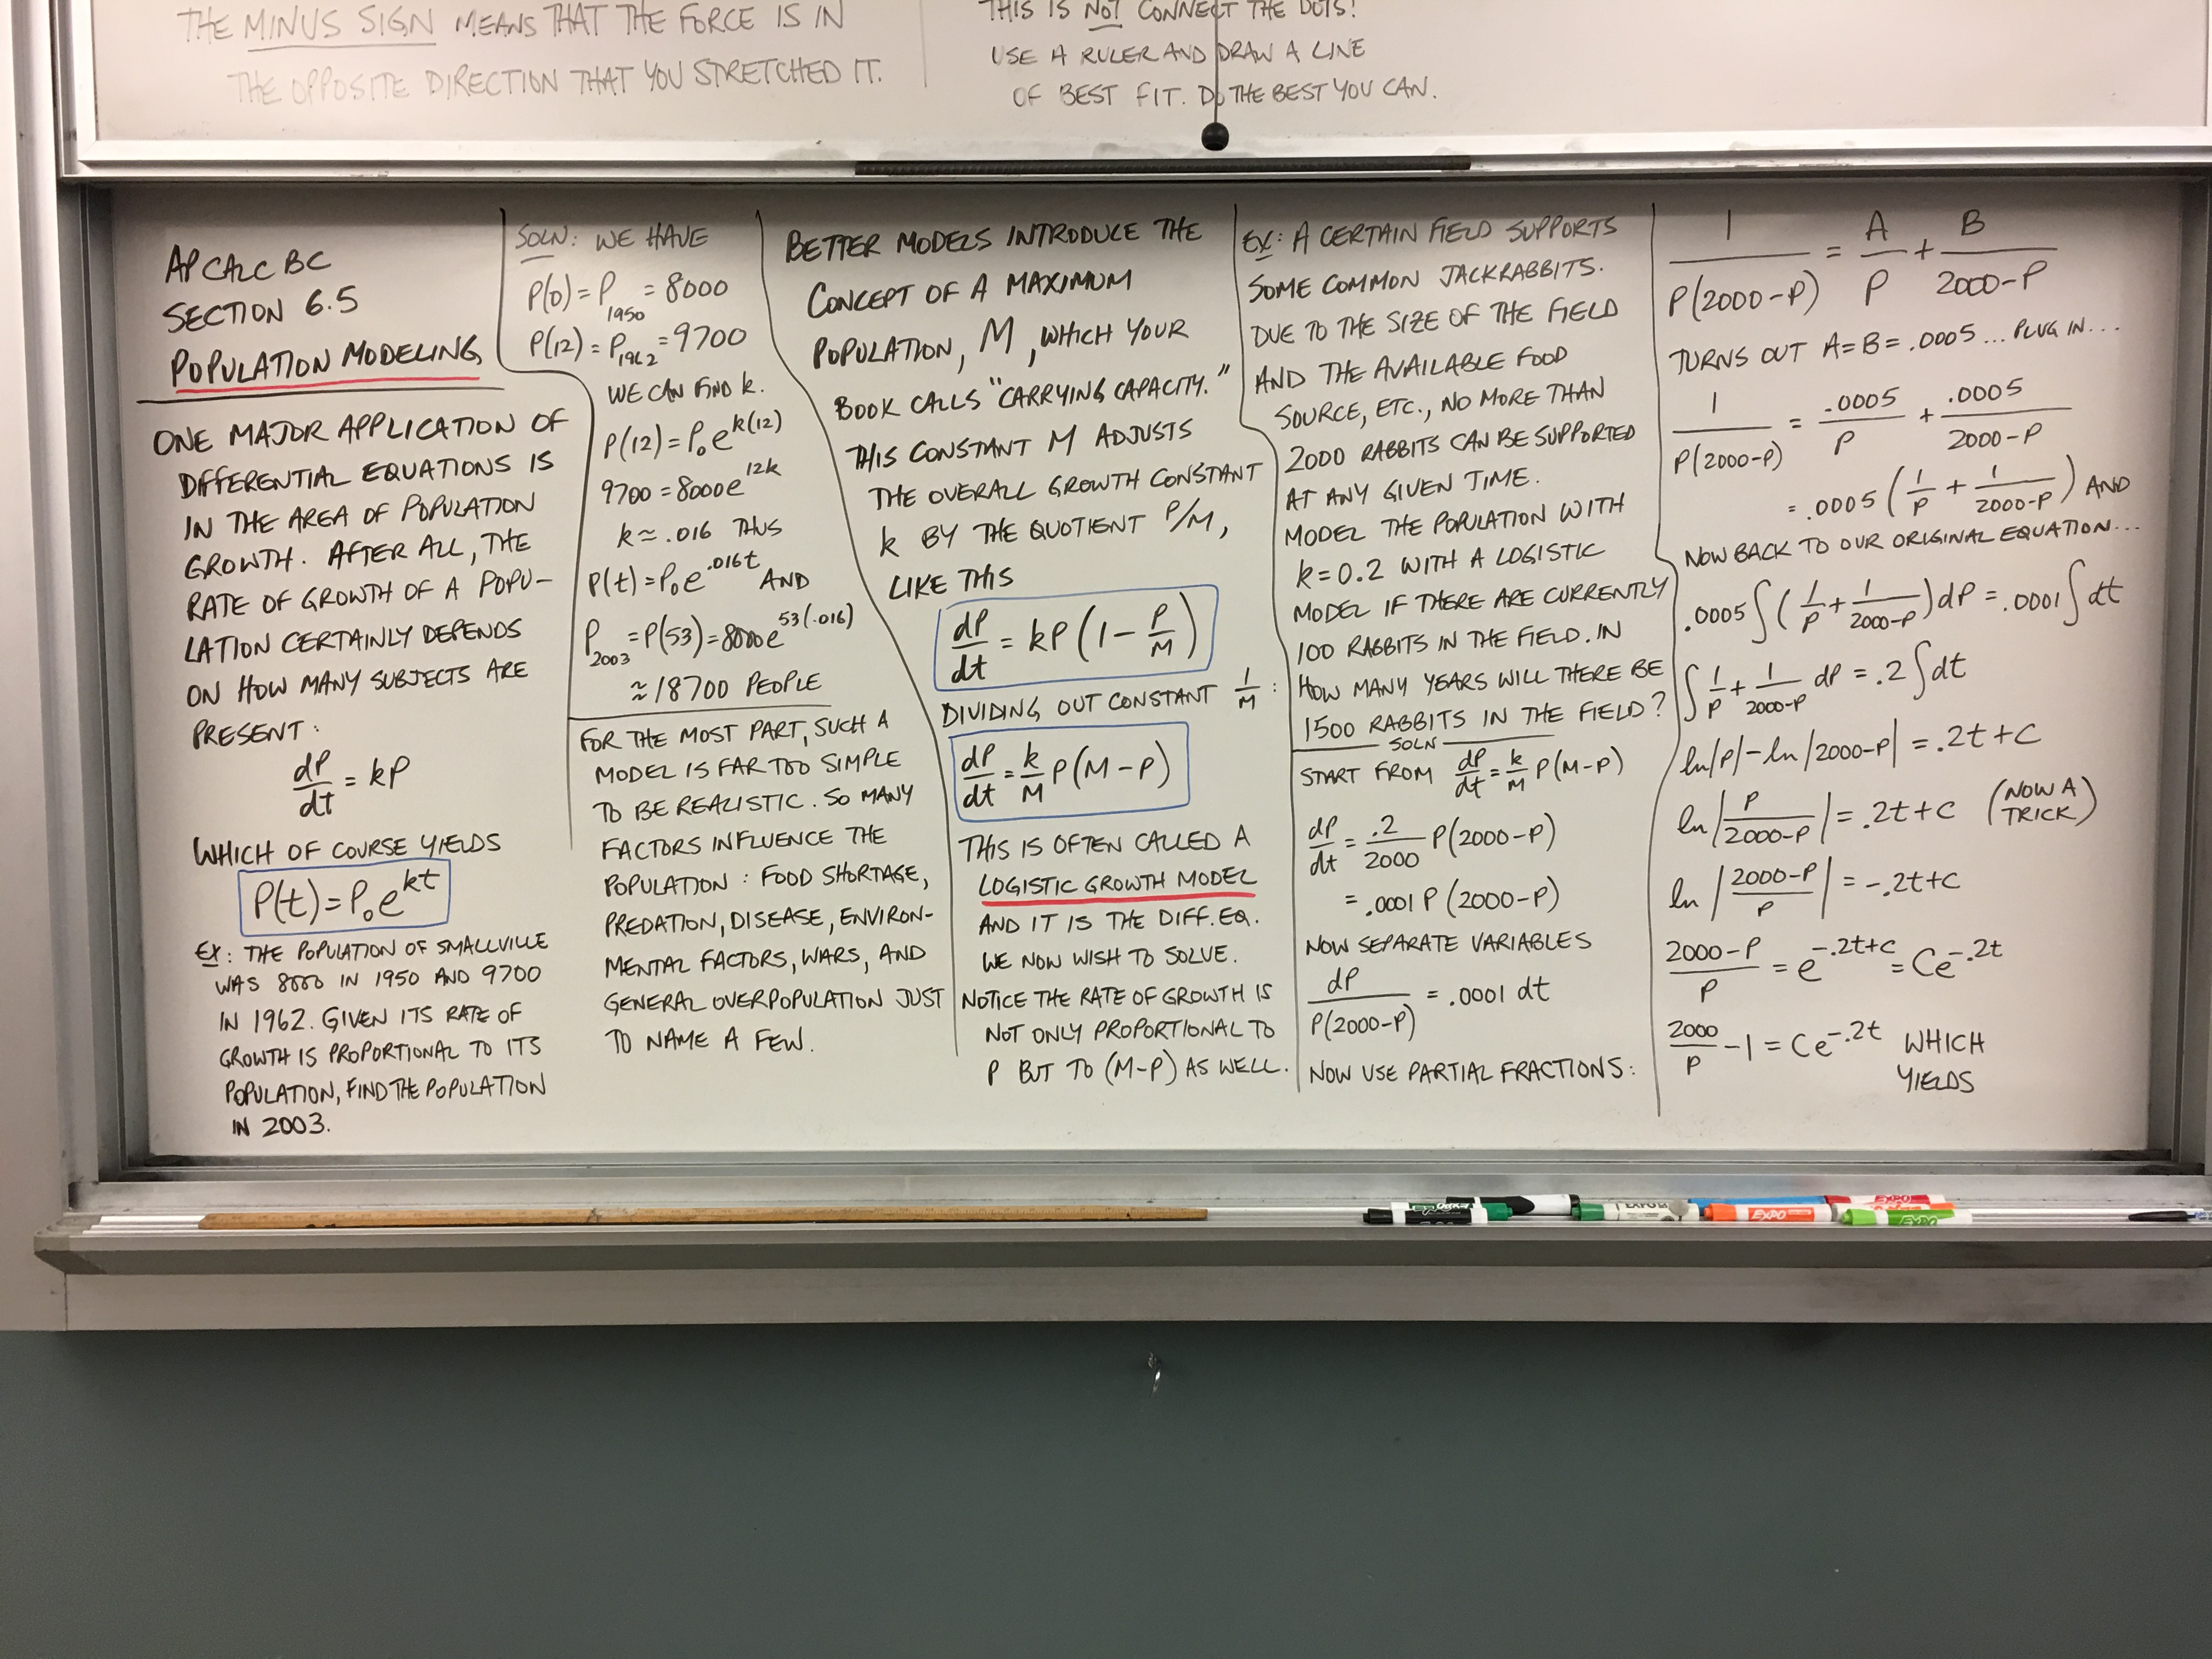 THE MINUS SIGN MEANS THAT THE FORCE IS IN
THE OPPOSITE DIRECTION THAT YOU STRETCHED IT.
THIS IS NOT CONNECT THE DOTS!
USE A RULER AND DRAW A LINE
OF BEST FIT. DO THE BEST YOU CAN.
AP CALC BC
SECTION 6.5
POPULATION MODELING
ONE MAJOR APPLICATION OF
DIFFERENTIAL EQUATIONS IS
IN THE AREA OF POPULATION
GROWTH. AFTER ALL, THE
RATE OF GROWTH OF A POPU-
LATION CERTAINLY DEPENDS
ON HOW MANY SUBJECTS ARE
PRESENT:
dP/dt = kP
WHICH OF COURSE YIELDS
P(t) = P₀e^kt
EX: THE POPULATION OF SMALLVILLE
WAS 8000 IN 1950 AND 9700
IN 1962. GIVEN ITS RATE OF
GROWTH IS PROPORTIONAL TO ITS
POPULATION, FIND THE POPULATION
IN 2003.
SOLN: WE HAVE
P(0) = P₁₉₅₀ = 8000
P(12) = P₁₉₆₂ = 9700
WE CAN FIND k.
P(12) = P₀e^k(12)
9700 = 8000e^12k
k ≈ .016 THUS
P(t) = P₀e^.016t AND
P₂₀₀₃ = P(53) = 8000e^53(.016)
≈ 18700 PEOPLE
FOR THE MOST PART, SUCH A
MODEL IS FAR TOO SIMPLE
TO BE REALISTIC. SO MANY
FACTORS INFLUENCE THE
POPULATION: FOOD SHORTAGE,
PREDATION, DISEASE, ENVIRON-
MENTAL FACTORS, WARS, AND
GENERAL OVERPOPULATION JUST
TO NAME A FEW.
BETTER MODELS INTRODUCE THE
CONCEPT OF A MAXIMUM
POPULATION, M, WHICH YOUR
BOOK CALLS "CARRYING CAPACITY."
THIS CONSTANT M ADJUSTS
THE OVERALL GROWTH CONSTANT
k BY THE QUOTIENT P/M,
LIKE THIS
dP/dt = kP(1 - P/M)
DIVIDING OUT CONSTANT 1/M:
dP/dt = k/M P(M-P)
THIS IS OFTEN CALLED A
LOGISTIC GROWTH MODEL
AND IT IS THE DIFF. EQ.
WE NOW WISH TO SOLVE.
NOTICE THE RATE OF GROWTH IS
NOT ONLY PROPORTIONAL TO
P BUT TO (M-P) AS WELL.
EX: A CERTAIN FIELD SUPPORTS
SOME COMMON JACKRABBITS.
DUE TO THE SIZE OF THE FIELD
AND THE AVAILABLE FOOD
SOURCE, ETC., NO MORE THAN
2000 RABBITS CAN BE SUPPORTED
AT ANY GIVEN TIME.
MODEL THE POPULATION WITH
k = 0.2 WITH A LOGISTIC
MODEL IF THERE ARE CURRENTLY
100 RABBITS IN THE FIELD. IN
HOW MANY YEARS WILL THERE BE
1500 RABBITS IN THE FIELD?
SOLN
START FROM dP/dt = k/M P(M-P)
dP/dt = .2/2000 P(2000-P)
= .0001 P(2000-P)
NOW SEPARATE VARIABLES
dP/P(2000-P) = .0001 dt
NOW USE PARTIAL FRACTIONS:
1/P(2000-P) = A/P + B/2000-P
TURNS OUT A=B=.0005 ... PLUG IN...
1/P(2000-P) = .0005/P + .0005/2000-P
= .0005 (1/P + 1/2000-P) AND
NOW BACK TO OUR ORIGINAL EQUATION...
.0005∫(1/P + 1/2000-P)dP = .0001∫dt
∫1/P + 1/2000-P dP = .2∫dt
ln|P| - ln|2000-P| = .2t+C
ln|P/2000-P| = .2t+C (NOW A TRICK)
ln|2000-P/P| = -.2t+C
2000-P/P = e^-.2t+C = Ce^-.2t
2000/P - 1 = Ce^-.2t WHICH
YIELDS
EXPO
EXPO
EXPO
EXPO